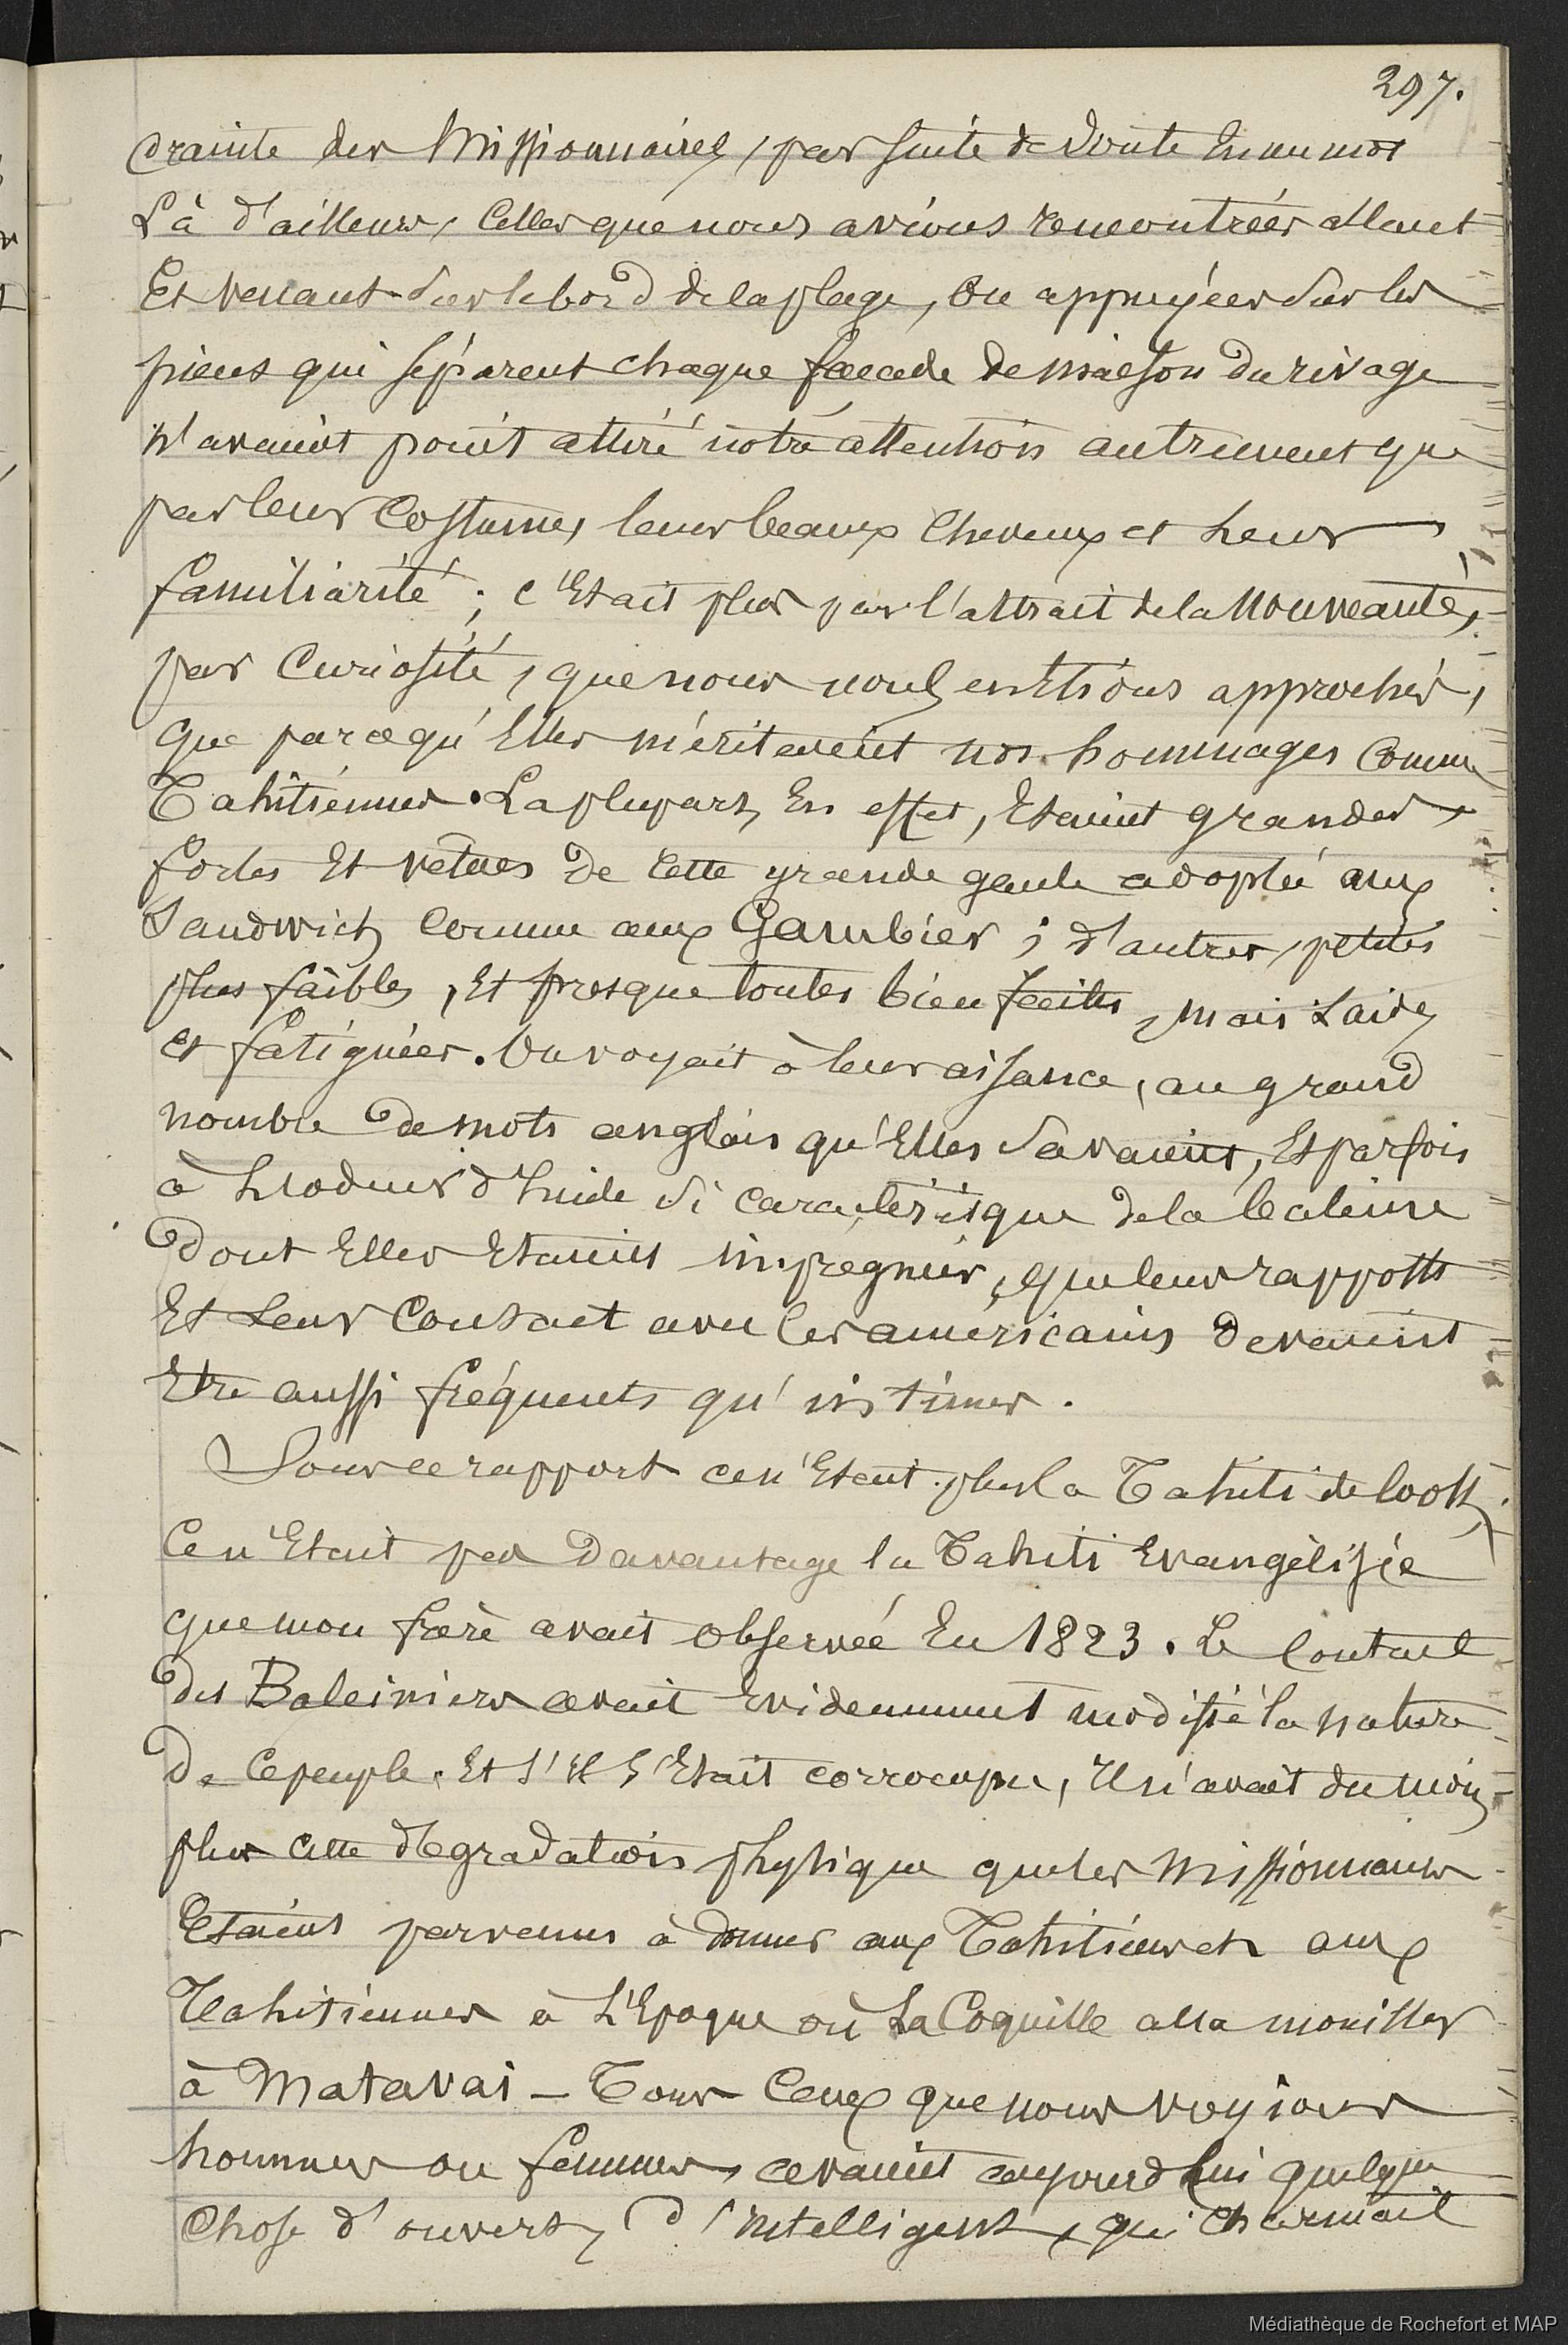 297.
crainte des Missionnaires, par suite de doute en un mot
Là d'ailleurs, celles que nous avions rencontrées allant
Et venant sur le bord de la plage, ou appuyées sur les
pieux qui séparent chaque facade de maison du rivage
n'avaient point attiré notre attention autrement que
par leur costume, leurs beaux cheveux et leur
familiarité ; c'était plus par l'attrait de la nouveauté,
par curiosité, que nous nous en étions approchés,
que parcequ'Elles méritaient nos hommages comme
Tahitiennes. La plupart, En effet, Etaient grandes,
fortes Et vetues de cette grande gaule adoptée aux
Sandwich comme aux Gambier ; d'autres, petites
plus faibles, Et presque toutes bien faites, mais Laides
et fatiguées. On voyait à leur aisance, au grand
nombre de mots anglais qu'Elles savaient, Et parfois
à L'odeur d'huile si caractérisque de la baleine
dont Elles Etaient imprégnées, que leurs rapports
Et Leur Contact avec les américains devaient
Etre aussi fréquents qu'intimes.
Sous ce rapport ce n'Etait plus la Tahiti de Cook,
Ce n'Etait pas davantage la Tahiti Evangélisée
que mon frère avait observée En 1823. Le Contact
des Baleiniers avait Evidemment modifié la nature
de ce peuple. Et s'Il s'Etait corrompu, Il n'avait du moins
plus cette dégradation physique que les missionnaires
Etaient parvenus à donner aux Tahitiens et aux
Tahitiennes à L'Epoque où La Coquille alla mouiller
à Matavai — Tous Ceux que nous voyions
hommes ou femmes, avaient aujourd'hui quelque
Chose d'ouvert, d'intelligent, qui charmait
Médiathèque de Rochefort et MAP